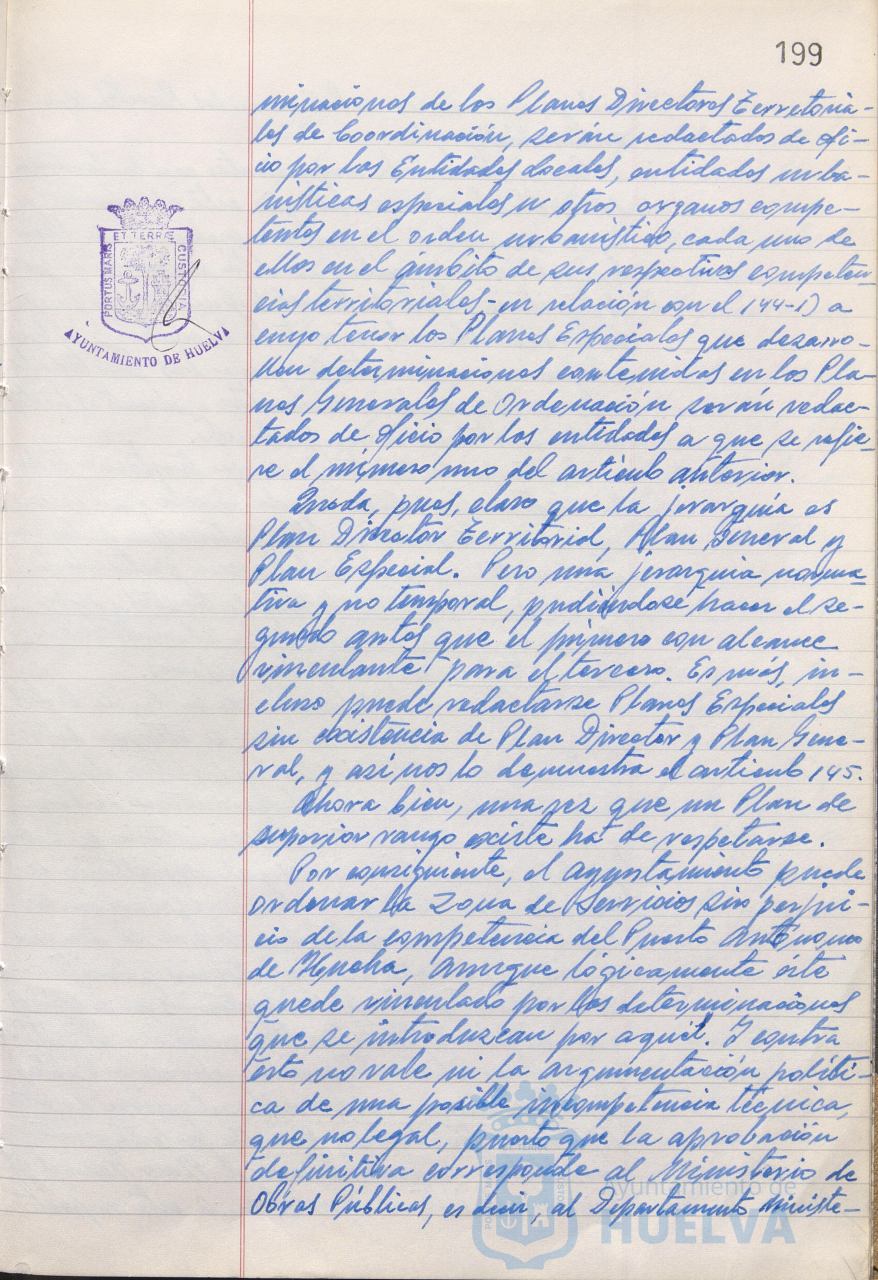 199
minaciones de los Planes Directores Territoria-
les de Coordinación, serán redactados de ofi-
cio por las Entidades Locales, entidades urba-
nísticas especiales u otros organos compe-
tentes en el orden urbanístico, cada uno de
ellos en el ámbito de sus respectivas competen-
cias territoriales- en relación con el 144-1) a
cuyo tenor los Planes Especiales que desarro-
llen determinaciones contenidas en los Pla-
nes Generales de Ordenación serán redac-
tados de oficio por las entidades a que se refie-
re el número uno del artículo anterior.
Queda, pues, claro que la jerarquía es
Plan Director Territorial, Plan General y
Plan Especial. Pero una jerarquía norma-
tiva y no temporal, pudiéndose hacer el se-
gundo antes que el primero con alcance
vinculante para el tercero. Es más, in-
cluso puede redactarse Planes Especiales
sin existencia de Plan Director y Plan Gene-
ral, y así nos lo demuestra el artículo 145.
Ahora bien, una vez que un Plan de
superior rango existe ha de respetarse.
Por consiguiente, el Ayuntamiento puede
ordenar la Zona de Servicios sin perjui-
cio de la competencia del Puerto Autónomo
de Huelva, aunque lógicamente éste
quede vinculado por las determinaciones
que se introduzcan por aquél. Y contra
ésto no vale ni la argumentación políti-
ca de una posible incompetencia técnica,
que no legal, puesto que la aprobación
definitiva corresponde al Ministerio de
Obras Públicas, es decir, al Departamento Ministe-
PORTUS MARIS
ET TERRÆ
CUSTODIA
AYUNTAMIENTO DE HUELVA
Ayuntamiento de
HUELVA